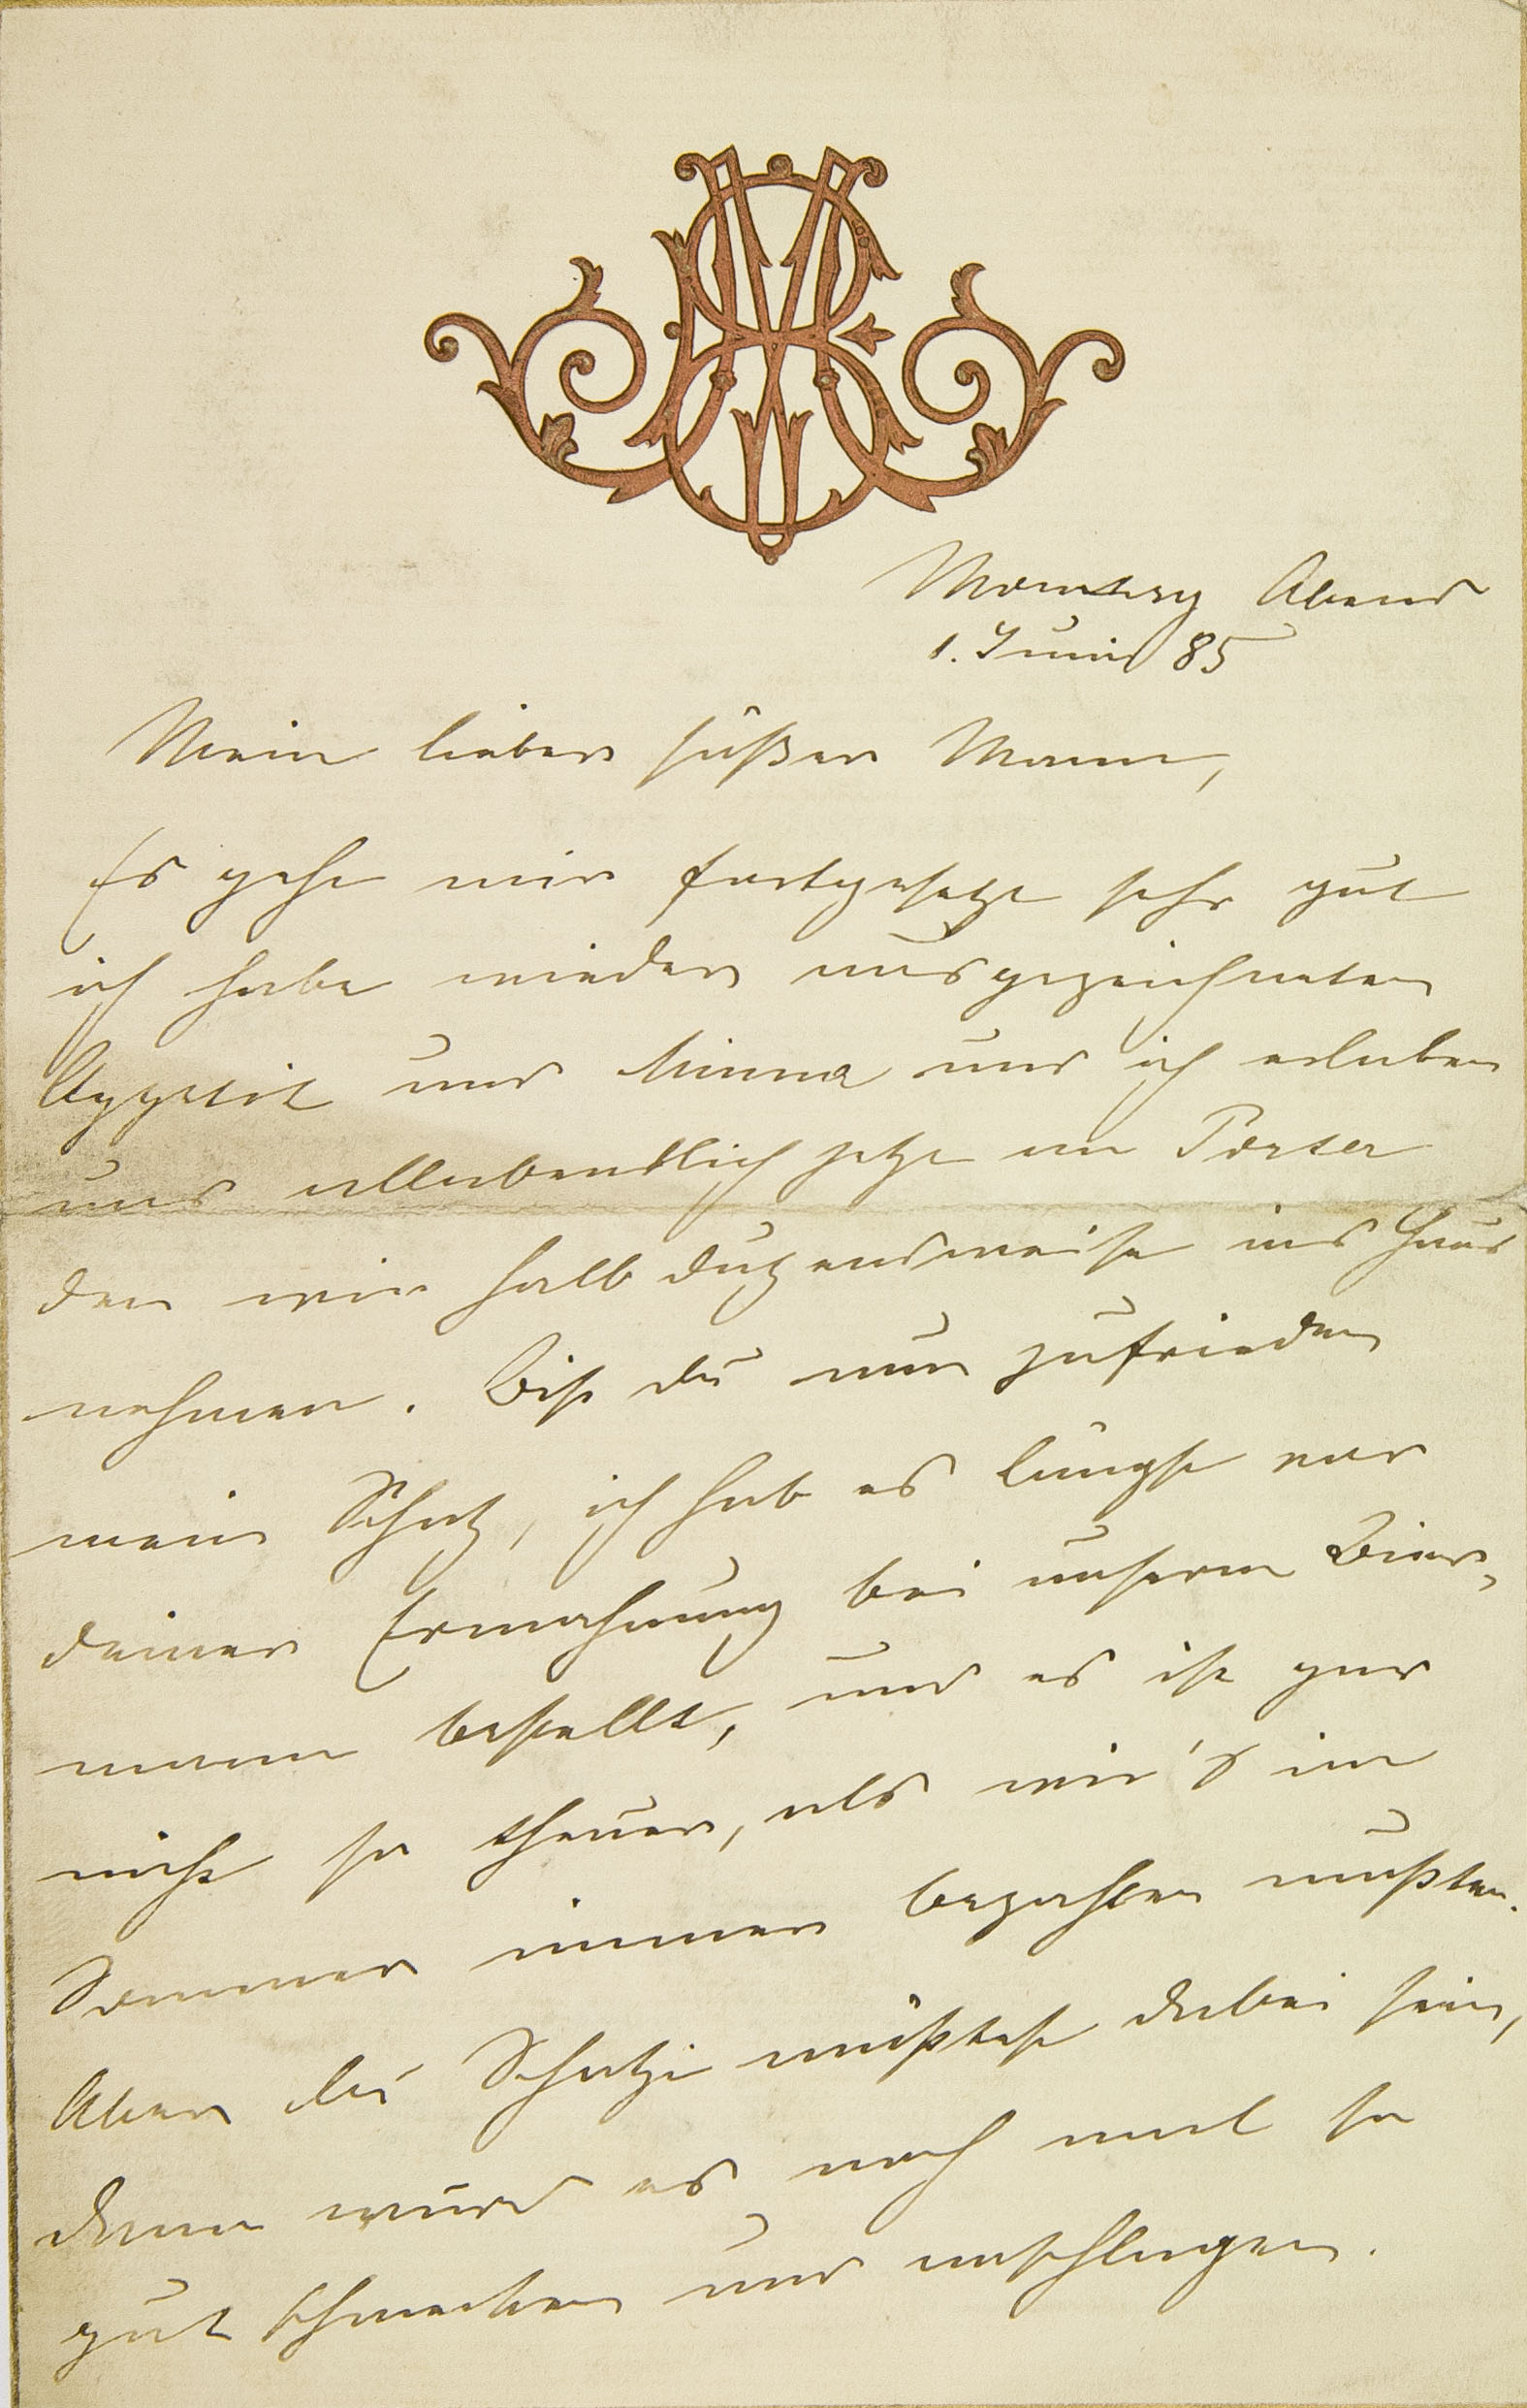 Montag Abend
1. Juni 85
Mein lieber süßer Mann,
Es geht mir fortgesetzt sehr gut
ich habe wieder ausgezeichneten
Appetit und Minna und ich erlaben
uns allabendlich jetzt an Porter
den wir halb dutzendweise ins Haus
nehmen. Bist du nun zufrieden
mein Schatz, ich hab es längst vor
deiner Ermahnung bei unserm Bier-
mann bestellt, und es ist gar
nicht so theuer, als wir's im
Sommer immer bezahlen mußten.
Aber du Schatzi müßtest dabei sein,
dann würd es noch mal so
gut schmecken und anschlagen.